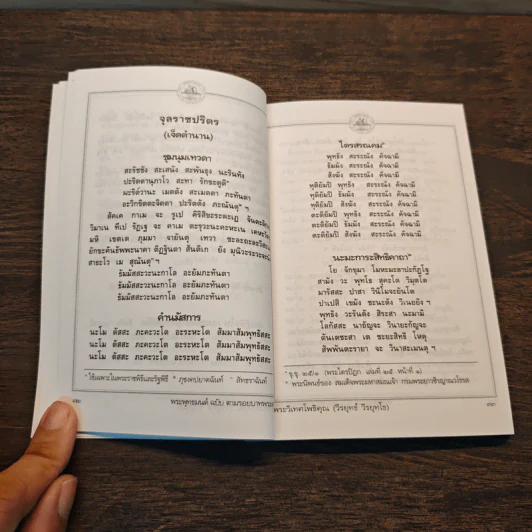 จุลราชปริตร
(เจ็ดตำนาน)
ชุมนุมเทวดา
สะรัชชัง สะเสนัง สะพันธุง นะรินทัง
ปะริตตานุภาโว สะทา รักขะตูติ
ผะริตวานะ เมตตัง สะเมตตา ภะทันตา
อะวิกขิตตะจิตตา ปะริตตัง ภะณันตุ ฯ
สัคเค กาเม จะ รูเป คิริสิขะระตะเฏ
วิมาเน ทีเป รัฏเฐ จะ คาเม ตะรุวะนะคะหะเน
ภุมมา จายันตุ เทวา
ยักขะคันธัพพะนาคา ติฏฐันตา สันติเก ยัง
สาธะโว เม สุณันตุ ฯ
ธัมมัสสะวะนะกาโล อะยัมภะทันตา
ธัมมัสสะวะนะกาโล อะยัมภะทันตา
ธัมมัสสะวะนะกาโล อะยัมภะทันตา
คำนมัสการ
นะโม ตัสสะ ภะคะวะโต อะระหะโต สัมมาสัมพุทธัสสะ
นะโม ตัสสะ ภะคะวะโต อะระหะโต สัมมาสัมพุทธัสสะ
นะโม ตัสสะ ภะคะวะโต อะระหะโต สัมมาสัมพุทธัสสะ
พระพุทธมนต์ ฉบับ
ไตรสรณคม
พุทธัง สะระณัง คัจฉามิ
ธัมมัง สะระณัง คัจฉามิ
สังฆัง สะระณัง คัจฉามิ
ทุติยัมปิ พุทธัง สะระณัง คัจฉามิ
ทุติยัมปิ ธัมมัง สะระณัง คัจฉามิ
ทุติยัมปิ สังฆัง สะระณัง คัจฉามิ
ตะติยัมปิ พุทธัง สะระณัง คัจฉามิ
ตะติยัมปิ ธัมมัง สะระณัง คัจฉามิ
ตะติยัมปิ สังฆัง สะระณัง คัจฉามิ
นะมะการะสิทธิคาถา
โย จักขุมา โมหะมะลาปะกัฏโฐ
สามัง วะ พุทโธ สุคะโต วิมุตโต
มารัสสะ ปาสา วินิโมจะยันโต
ปาเปสิ เขมัง ชะนะตัง วิเนยยัง ฯ
พุทธัง วะรันตัง สิระสา นะมามิ
โลกัสสะ นาถัญจะ วินายะกัญจะ
ตันเตชะสา เต ชะยะสิทธิ โหตุ
สัพพันตะรายา จะ วินาสะเมนตุ ฯ
พระวิเทศโพธิคุณ (วีรยุทธ์ วีรยุทฺโธ)